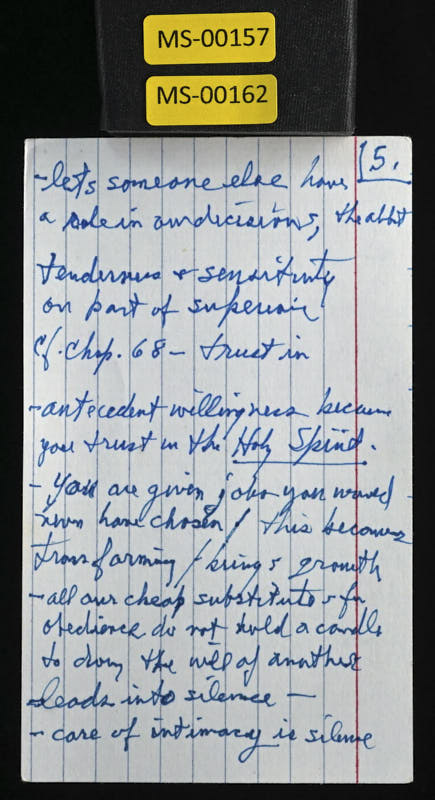 MS-00157
MS-00162
15.
- lets someone else have
a role in our decisions, the abbot
tenderness & sensitivity
on part of superior
Cf. Chap. 68 - trust in
- antecedent willingness because
you trust in the Holy Spirit.
- You are given jobs you would
never have chosen / this becomes
transforming / brings growth
- all our cheap substitutes for
obedience do not hold a candle
to doing the will of another
- leads into silence -
- core of intimacy is silence